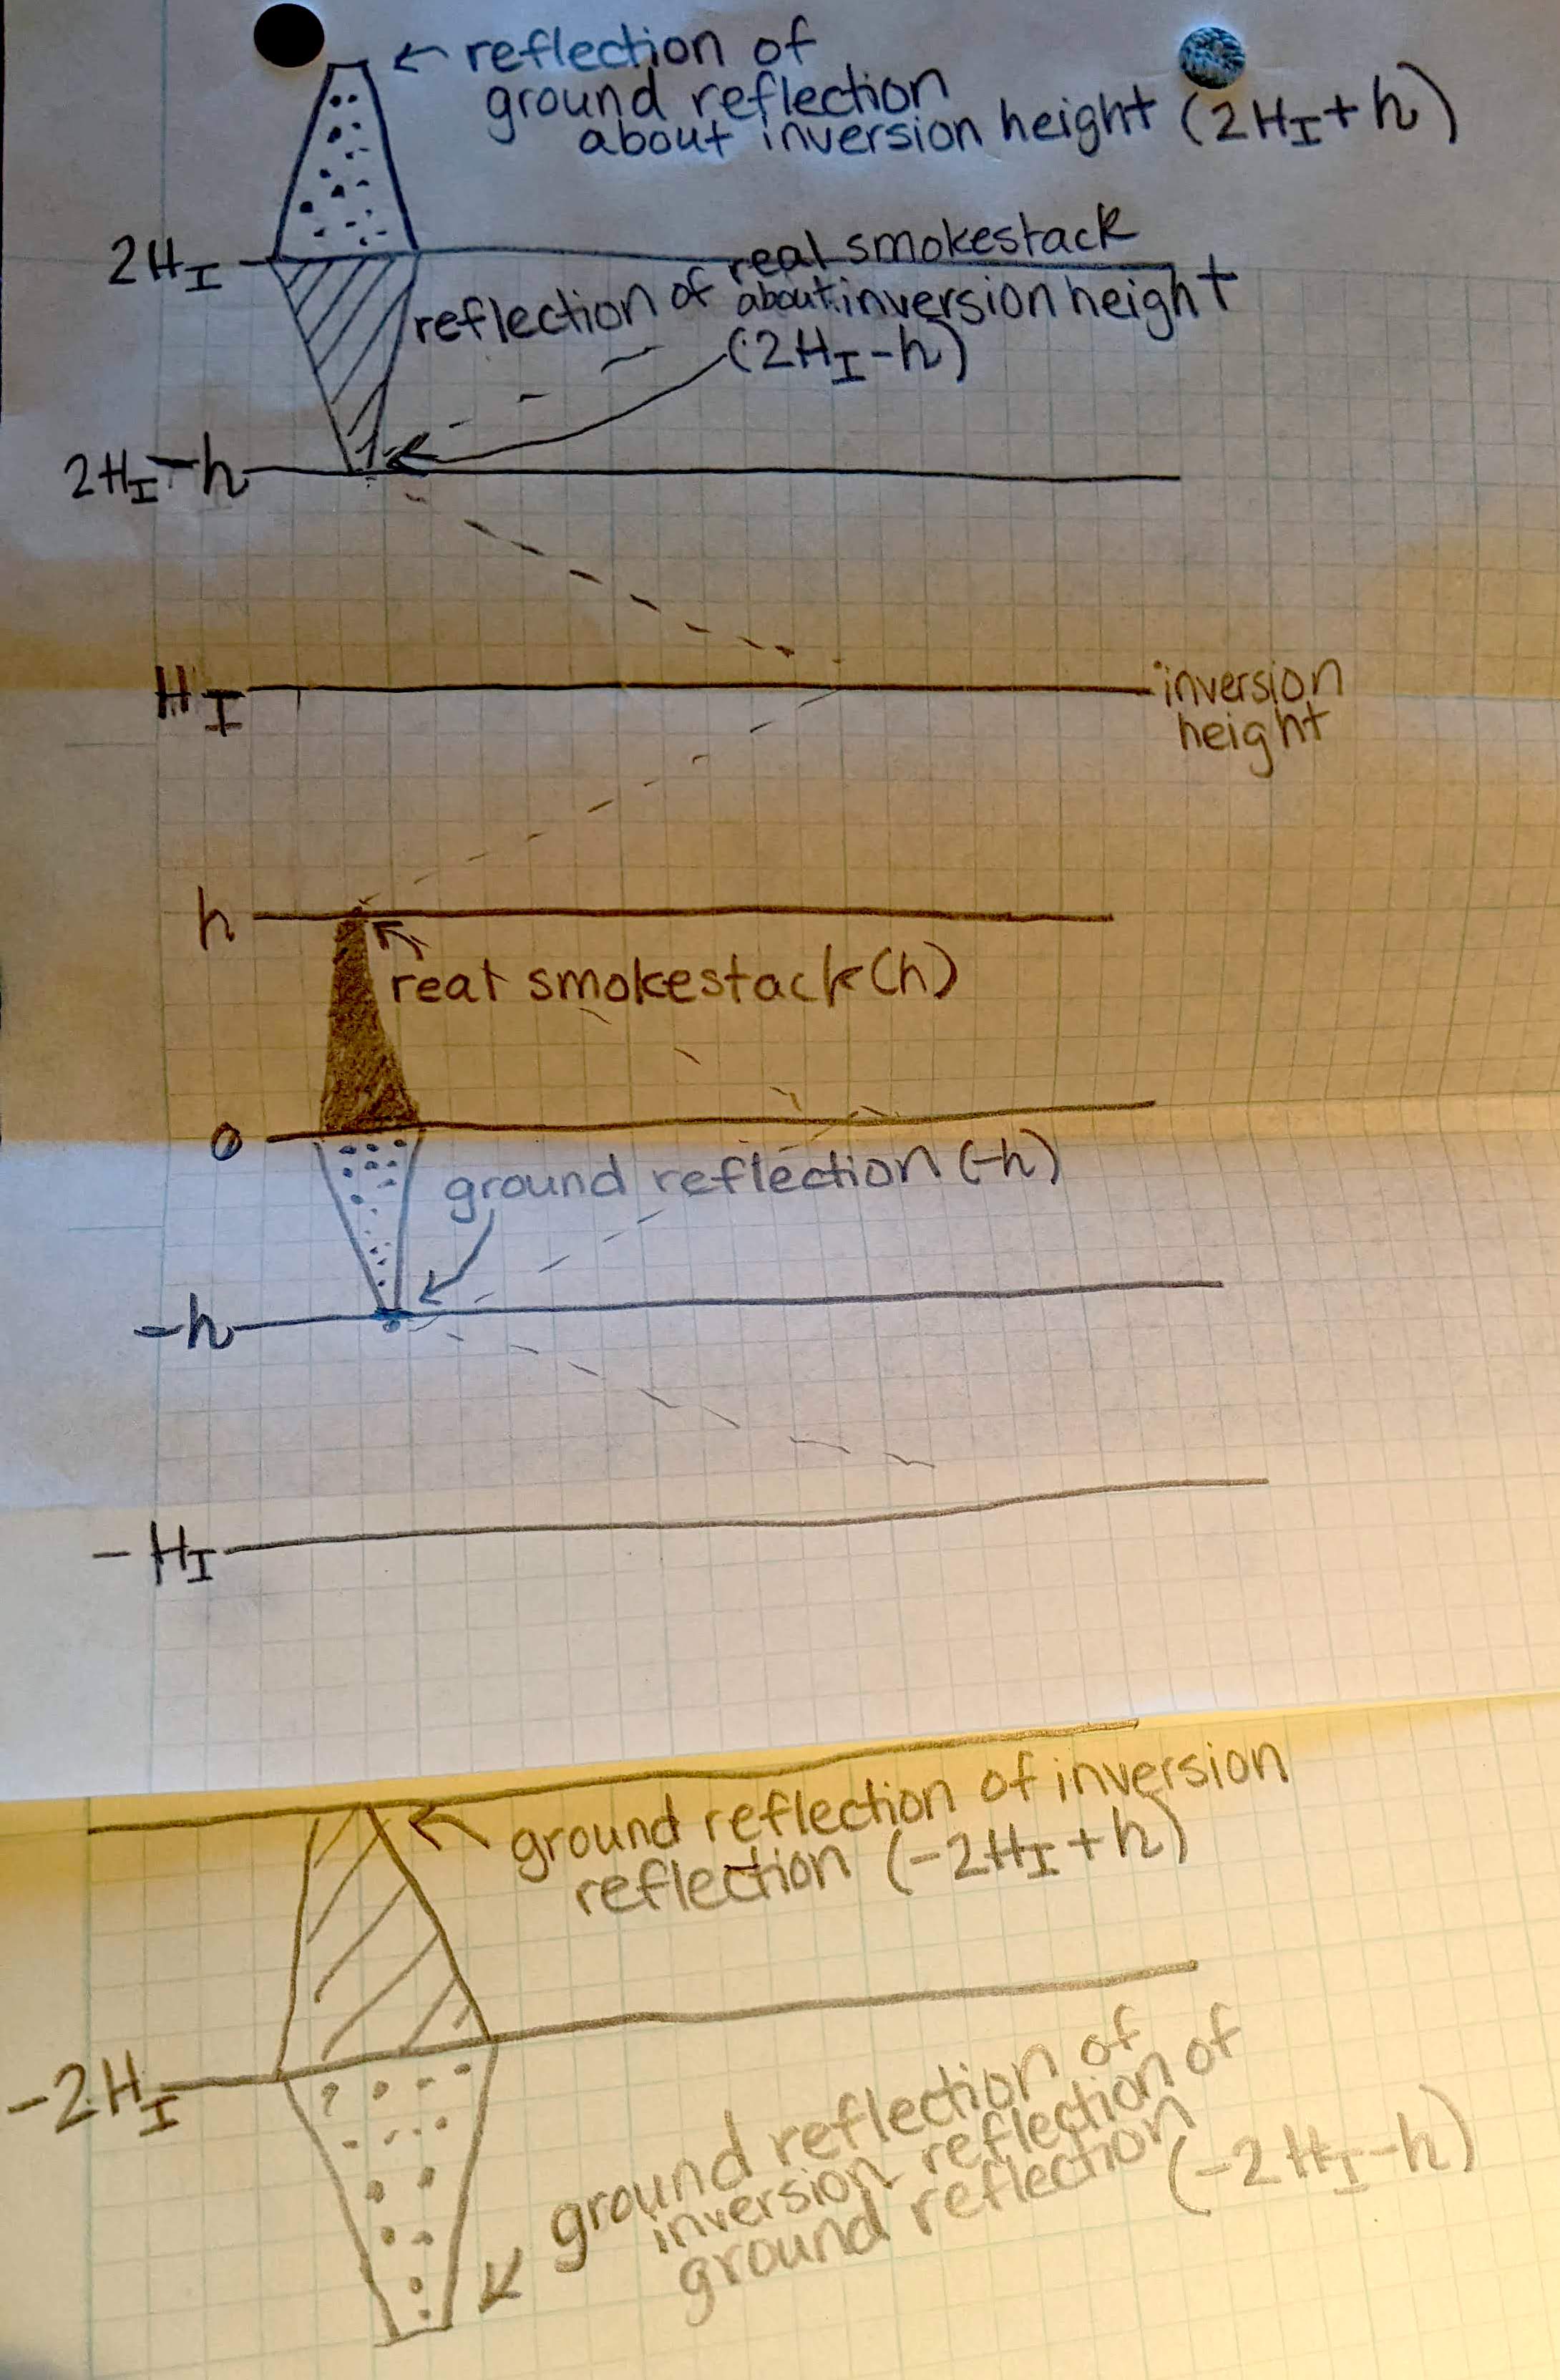 ← reflection of
ground reflection
about inversion height (2H_I + h)
2H_I
reflection of real smokestack
about inversion height
(2H_I - h)
2H_I - h
H_I
inversion
height
h
real smokestack (h)
0
ground reflection (-h)
-h
- H_I
ground reflection of inversion
reflection (-2H_I + h)
-2H_I
ground reflection of
inversion reflection of
ground reflection (-2H_I - h)